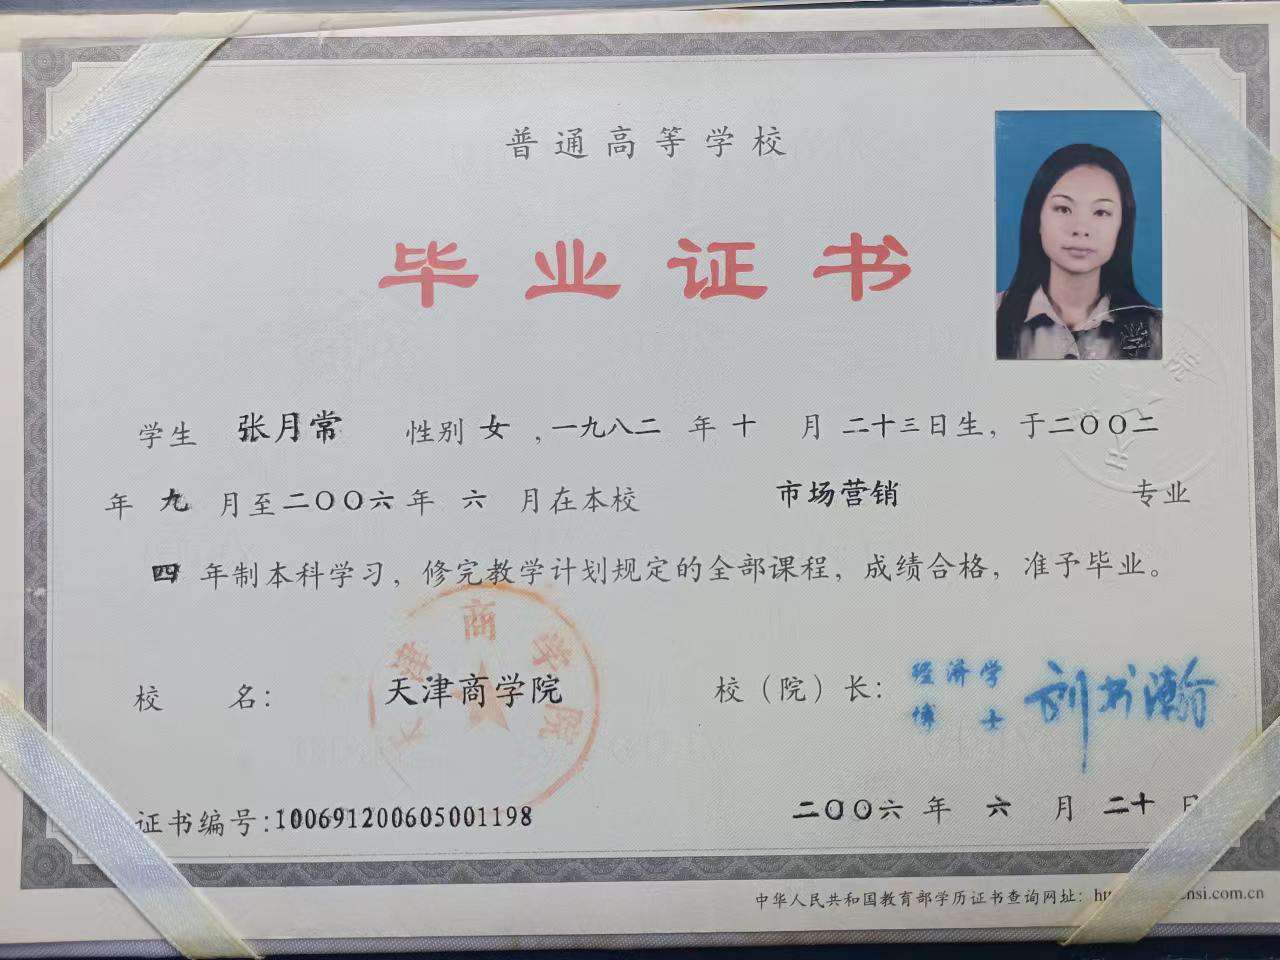 普通高等学校
毕业证书
学生 张月常 性别 女 ,一九八二 年 十 月 二十三日生，于二〇〇二
年 九 月至 二〇〇六 年 六 月在本校 市场营销 专业
四 年制本科学习，修完教学计划规定的全部课程，成绩合格，准予毕业。
校 名： 天津商学院 校（院）长： 经济学博士 刘书瀚
天津商学院
证书编号:100691200605001198 二〇〇六 年 六 月 二十 日
中华人民共和国教育部学历证书查询网址： nsi.com.cn